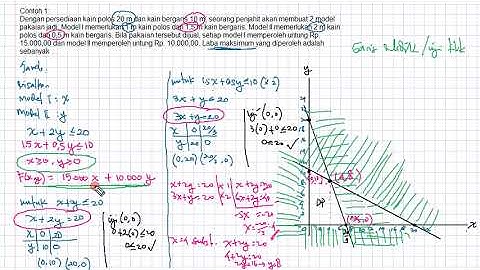 Contoh 1
Dengan persediaan kain polos 20 m dan kain bergaris 10 m, seorang penjahit akan membuat 2 model
pakaian jadi. Model I memerlukan 1 m kain polos dan 1,5 m kain bergaris. Model II memerlukan 2 m kain
polos dan 0,5 m kain bergaris. Bila pakaian tersebut dijual, setiap model I memperoleh untung Rp.
15.000,00 dan model II memperoleh untung Rp. 10.000,00. Laba maksimum yang diperoleh adalah
sebanyak
Jawab.
Misalkan
Model I : x
Model II : y
x + 2y ≤ 20
1,5 x + 0,5 y ≤ 10
x ≥ 0, y ≥ 0
F(x,y) = 15.000 x + 10.000 y
untuk x + 2y ≤ 20
x + 2y = 20
x 0 20
y 10 0
(0,10) (20,0)
uji (0,0)
0 ≤ 20 ✓
untuk 1,5x + 0,5y ≤ 10 (×2)
3x + y ≤ 20
3x + y = 20
x 0 20/3
y 20 0
(0,20) (20/3, 0)
uji (0,0)
3(0) + 0 ≤ 20
0 ≤ 20 ✓
x + 2y = 20
3x + y = 20
x = 4
x + 2y = 20
4 + 2y = 20
2y = 16 → y = 8
y
x
(4,8)
DP